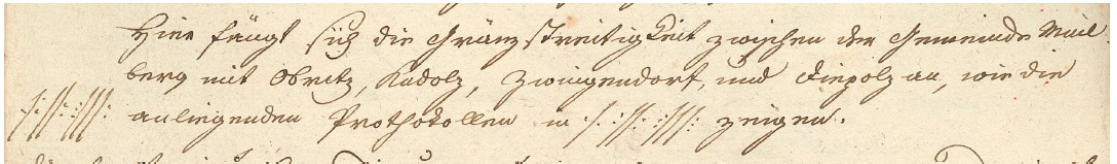 Hier fängt sich die Gränzstreitigkeit zwischen der Gemeinde Mail-
berg mit Obritz, Kadolz, Zwingendorf, und Diepolz an, wie die
·/· ·//· ·///· anliegenden Prothokollen in ·/· ·//· ·///· zeigen.